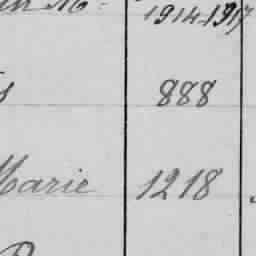 1914-1917
888
Marie 1218